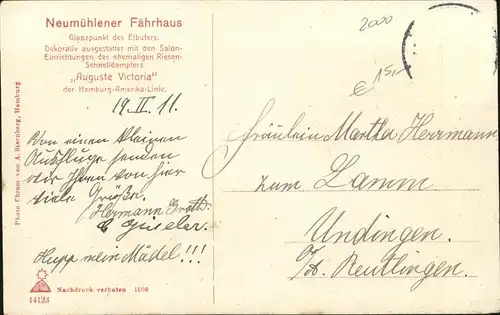 Neumühlener Fährhaus
Glanzpunkt des Elbufers.
Dekorativ ausgestattet mit den Salon-
Einrichtungen des ehemaligen Riesen-
Schnelldampfers
„Auguste Victoria"
der Hamburg-Amerika-Linie.
19. II. 11.
Von einem kleinen
Ausfluge senden
wir Ihnen von hier
viele Grüße.
Hermann
& Giseler.
Hupp mein Mädel!!!
Photo Chrom von A. Sternberg, Hamburg
Nachdruck verboten 1909
14123
2000
€ 15,-
Fräulein Martha Herrmann
zum Lamm
Undingen.
O/A. Reutlingen.